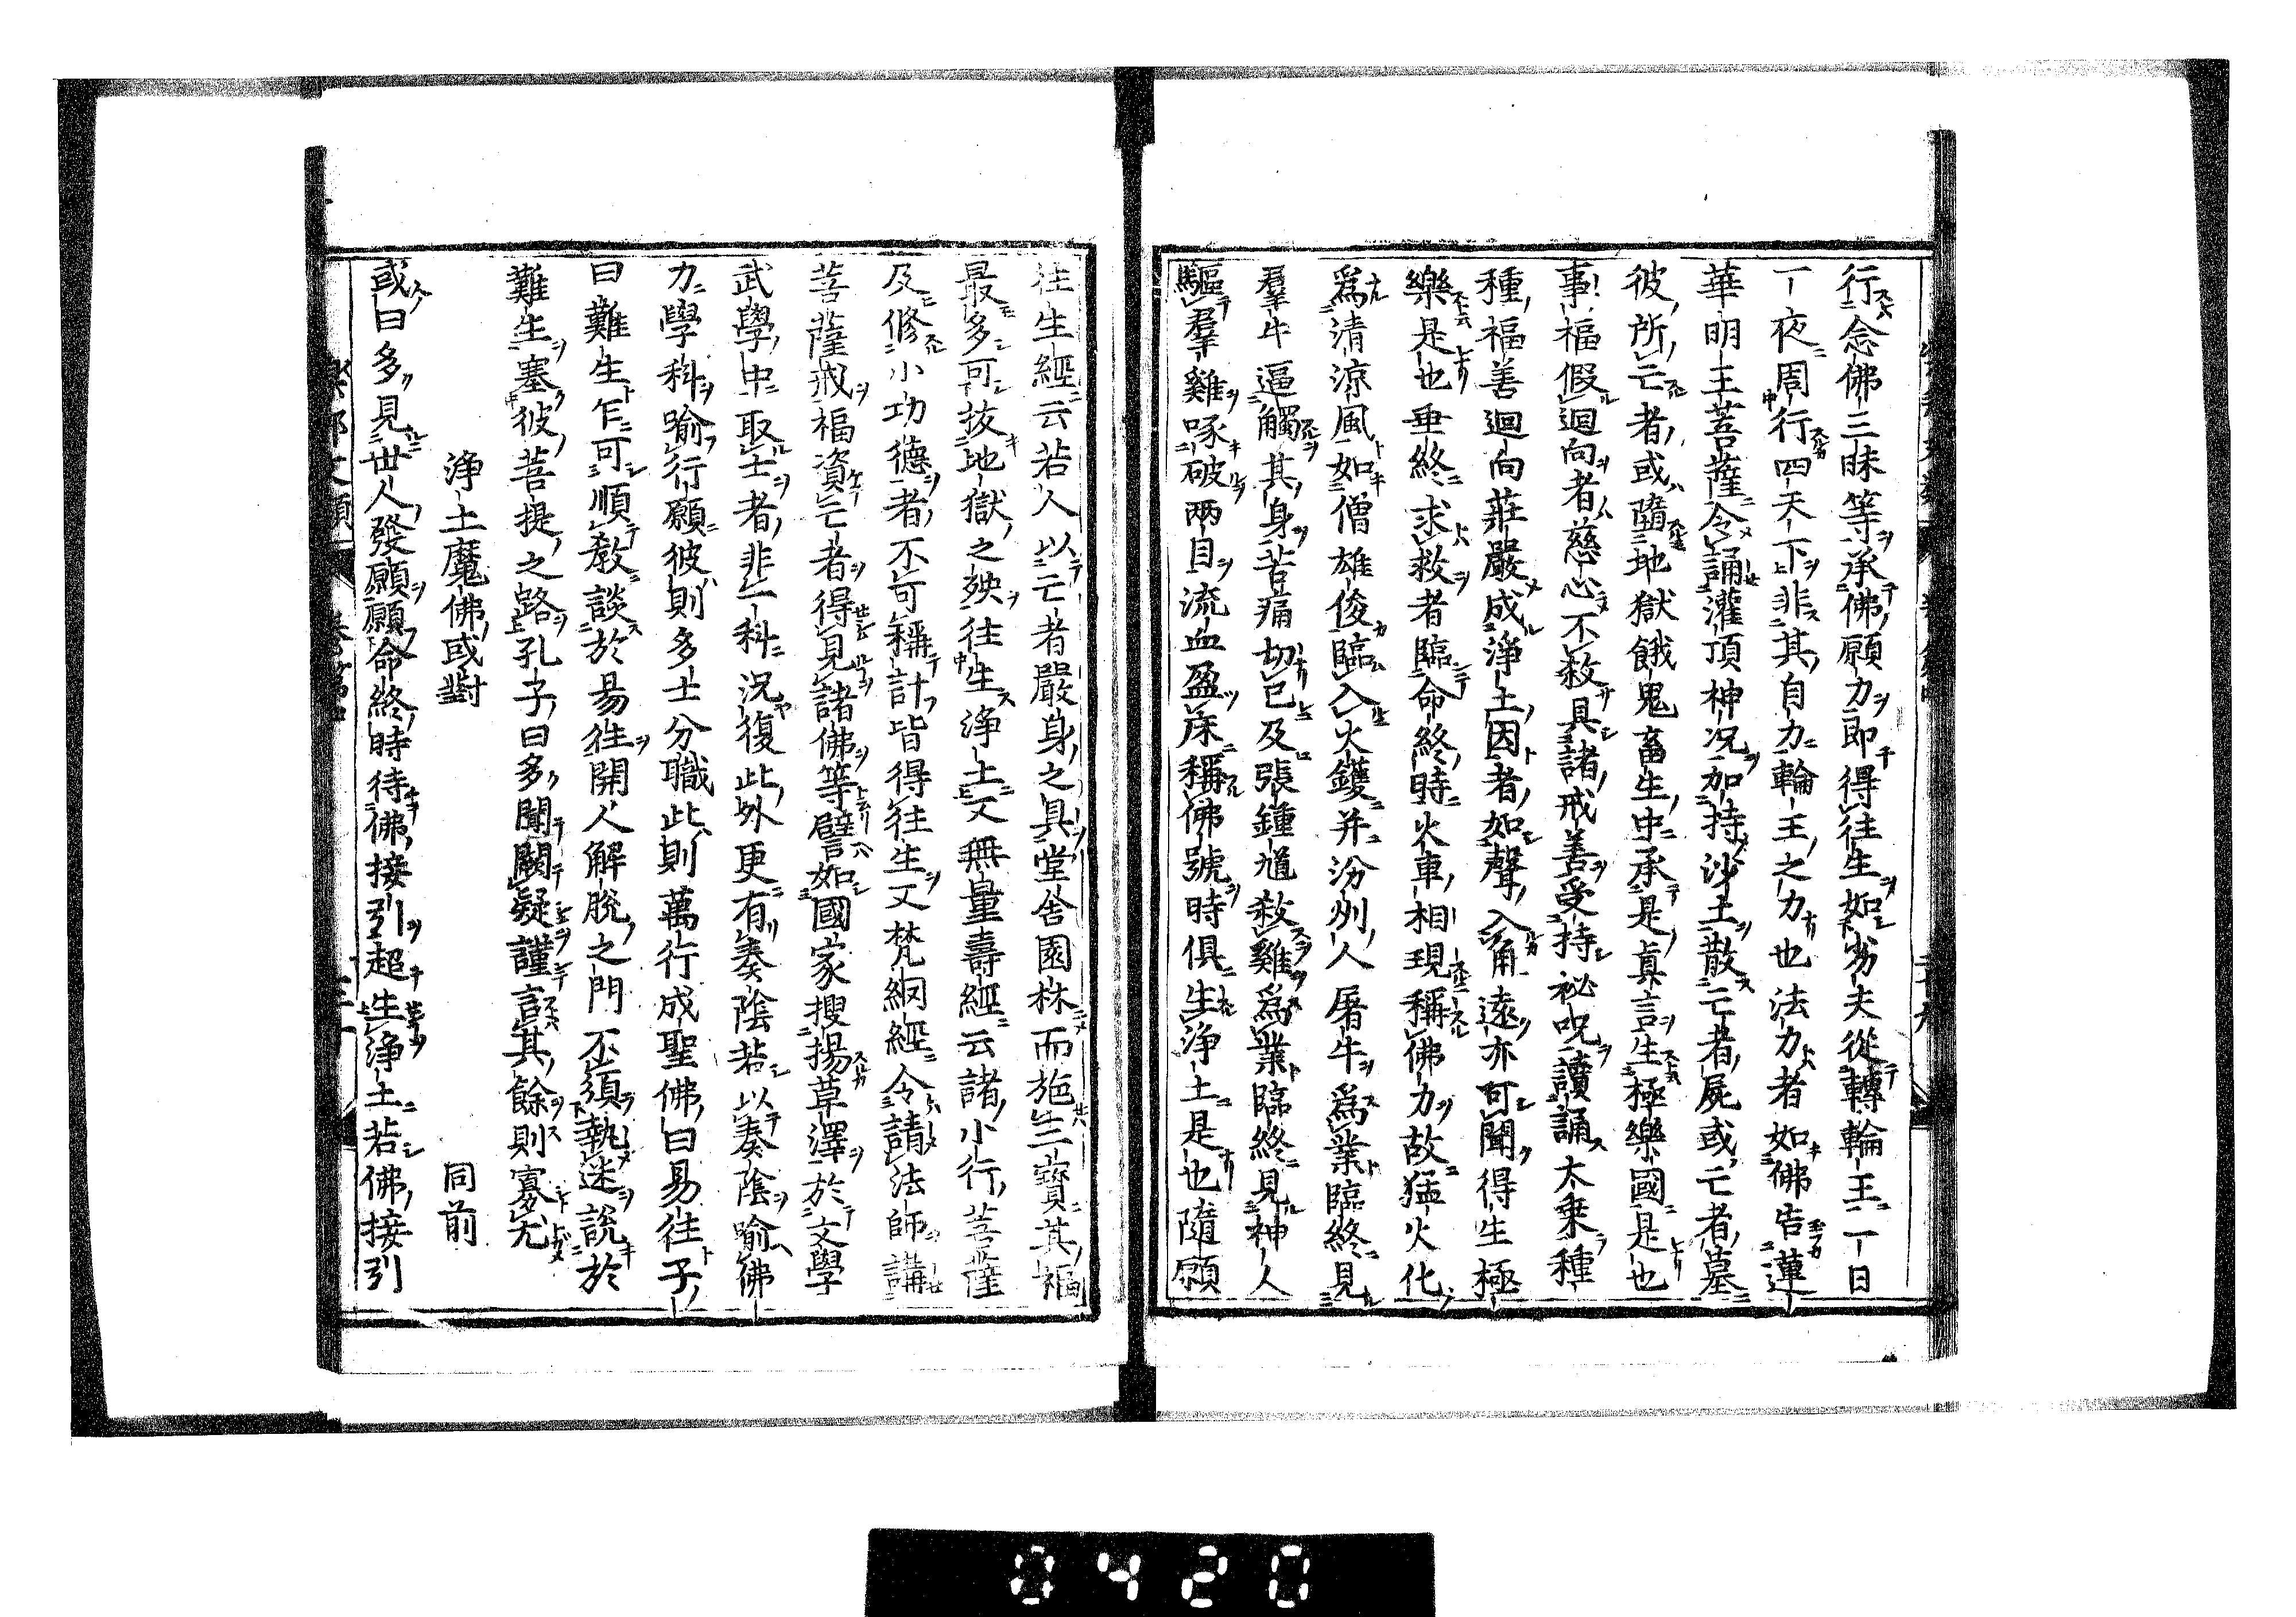 行念佛三昧等承佛願力即得往生如劣夫從轉輪王一日
一夜周行四天下非其自力輪王之力也法力者如佛告蓮
華明王菩薩令誦灌頂神況加持沙土散亡者屍或亡者墓
彼所亡者或隨地獄餓鬼畜生中承是眞言生極樂國是也
事福假迴向者慈心不殺具諸戒善受持祕呪讀誦大乗種
種福善迴向莊嚴成淨土因者如聲入角遠亦可聞得生極
樂是也垂終求救者臨命終時火車相現稱佛力故猛火化
爲清涼風如僧雄俊臨入火鑊并汾州人屠牛爲業臨終見
羣牛逼觸其身苦痛切已及張鍾馗殺雞爲業臨終見神人
驅羣雞啄破兩目流血盈床稱佛號時俱生淨土是也隨願
往生經云若人以亡者嚴身之具堂舍園林而施三寶其福
最多可抜地獄之殃往生淨土又無量壽經云諸小行菩薩
及修小功德者不可稱計皆得往生又梵網經令請法師講
菩薩戒福資亡者得見諸佛等譬如國家搜揚草澤於文學
武學中取士者非一科況復此外更有奏陰若以奏陰喻佛
力學科喻行願彼則多士分職此則萬行成聖佛曰易往子
曰難生乍可順教談於易往開人解脫之門不須執迷說於
難生塞彼菩提之路孔子曰多聞闕疑謹言其餘則寡尤
淨土魔佛或對　同前
或曰多見世人發願願命終時待佛接引超生淨土若佛接引
樂邦文類　卷第四